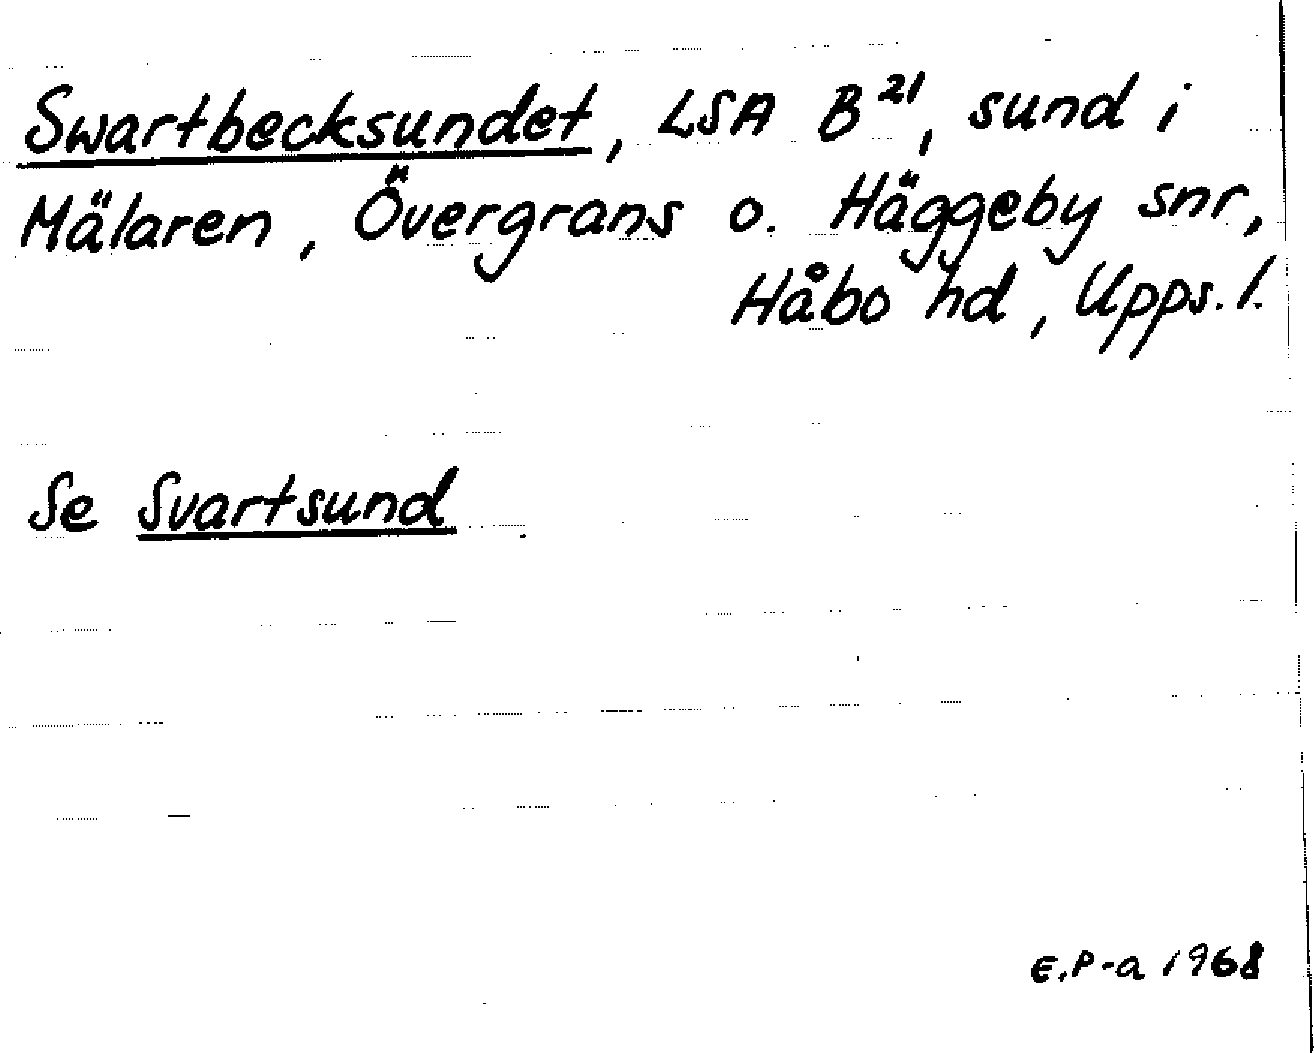 Swartbecksundet, LSA B²¹, sund i
Mälaren, Övergrans o. Häggeby snr,
Håbo hd, Upps. l.
Se Svartsund
E.P-a 1968